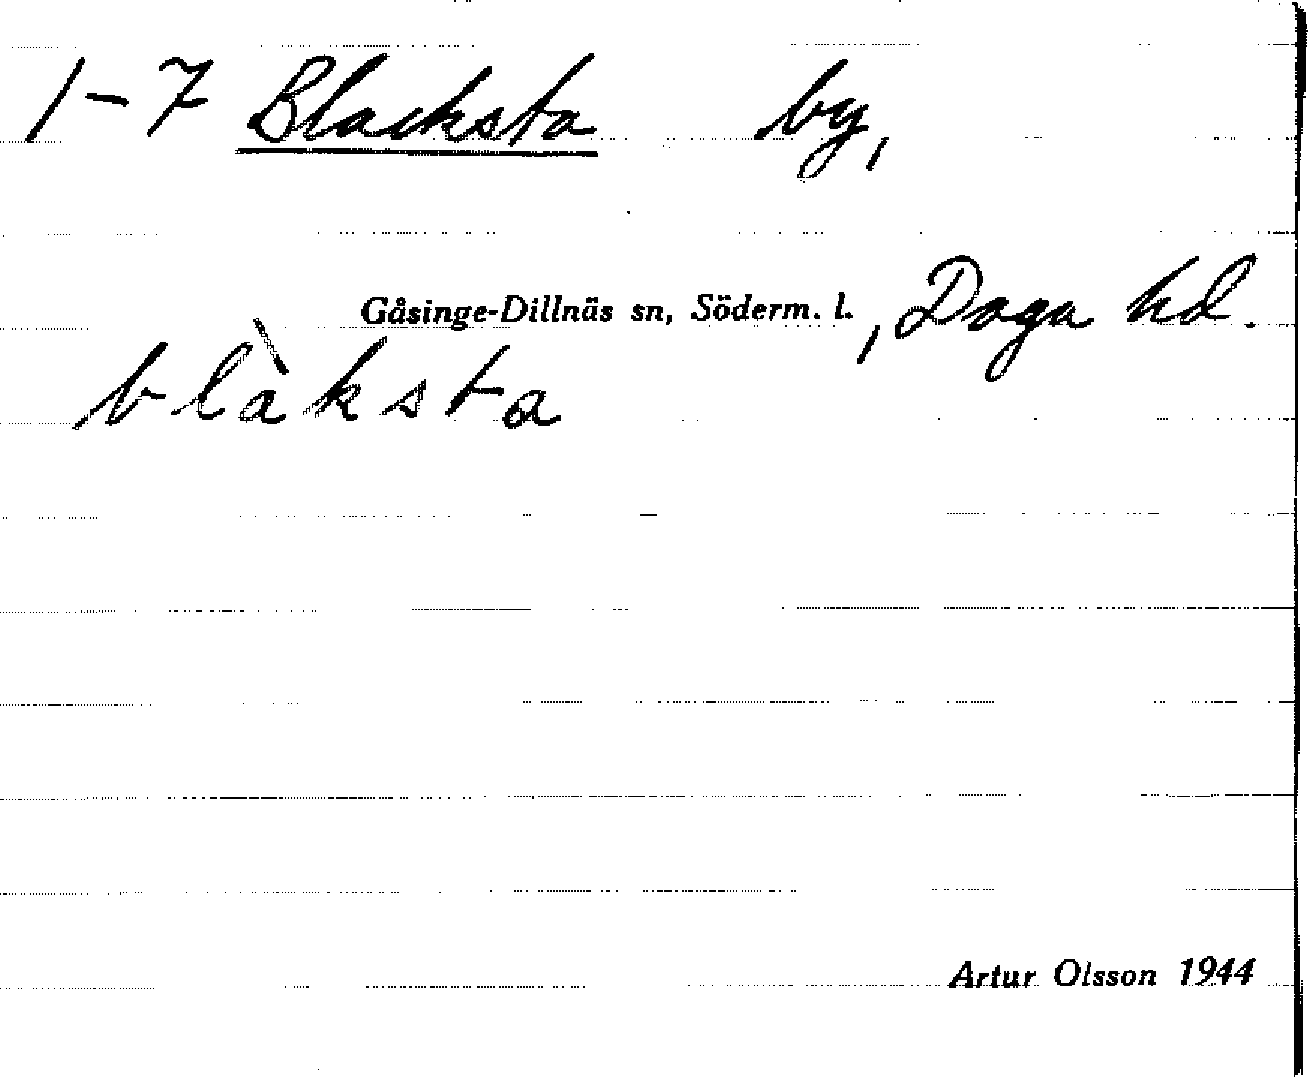 1-7 Blacksta by,
Gåsinge-Dillnäs sn, Söderm. l., Daga hd.
blàksta
Artur Olsson 1944